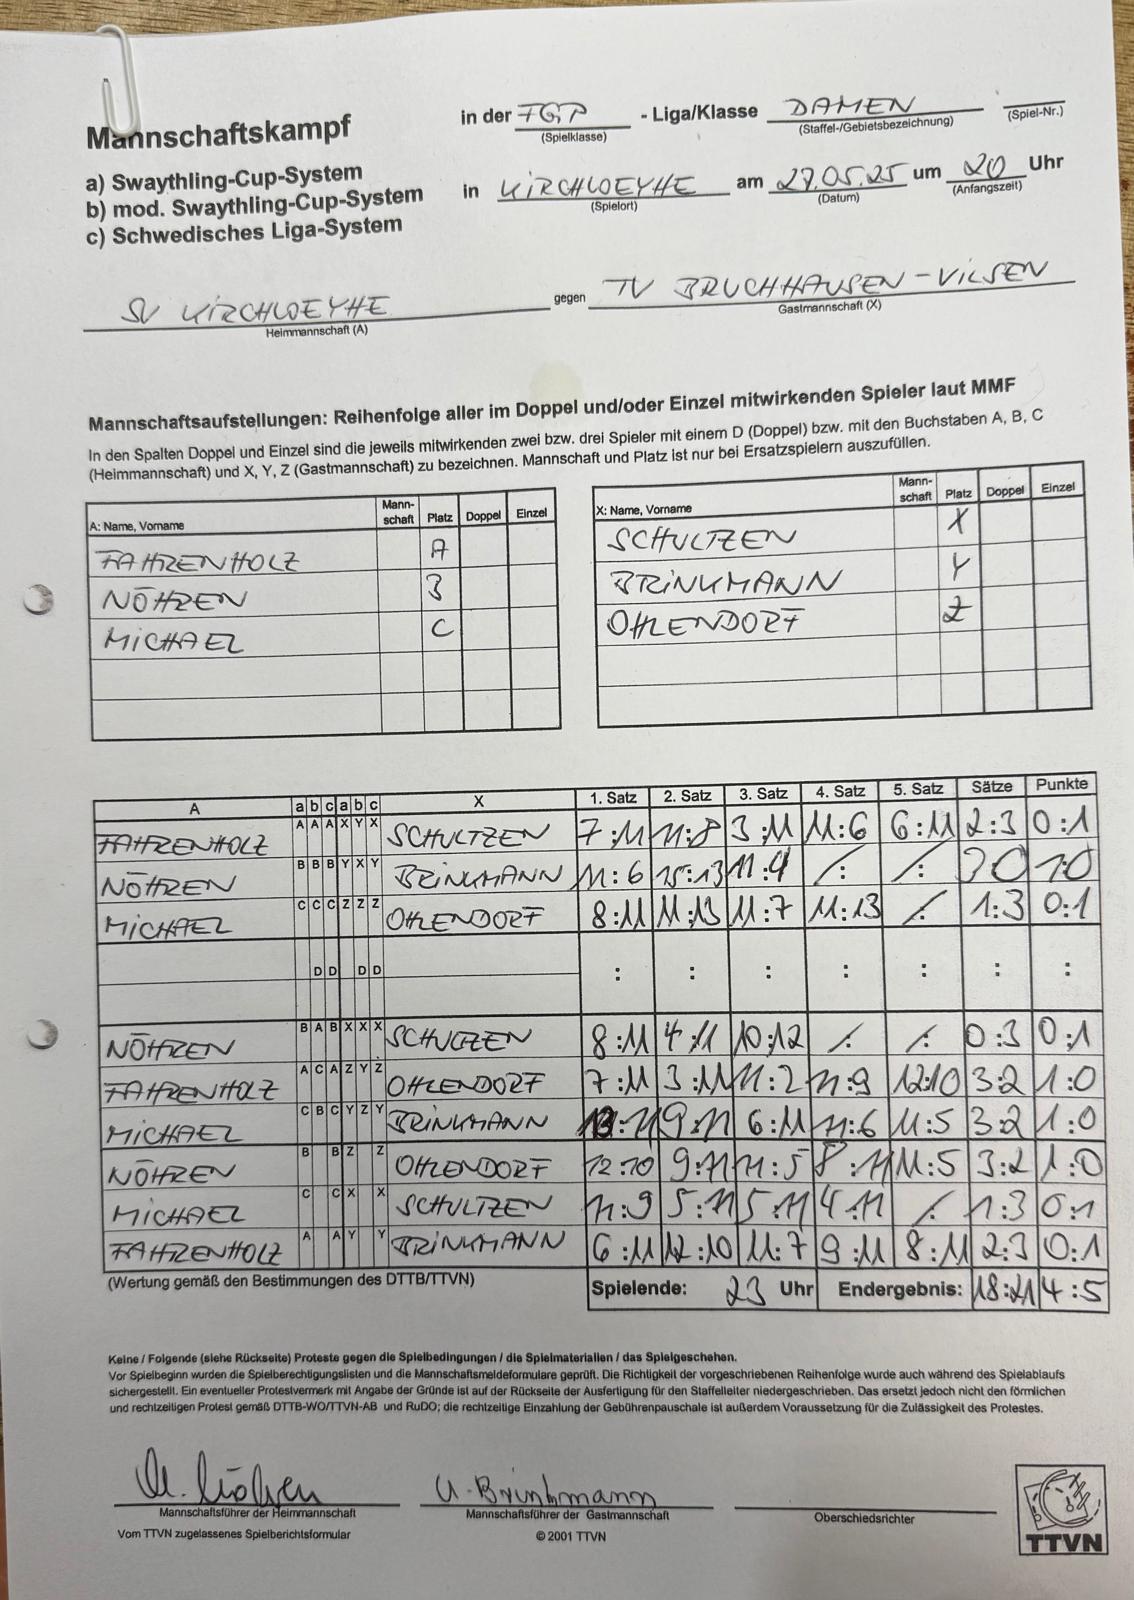 Mannschaftskampf
in der FGP - Liga/Klasse DAMEN
(Spielklasse) (Staffel-/Gebietsbezeichnung) (Spiel-Nr.)
a) Swaythling-Cup-System
b) mod. Swaythling-Cup-System
c) Schwedisches Liga-System
in KIRCHWEYHE am 27.05.25 um 20 Uhr
(Spielort) (Datum) (Anfangszeit)
SV KIRCHWEYHE gegen TV BRUCHHAUSEN-VILSEN
Heimmannschaft (A) Gastmannschaft (X)
Mannschaftsaufstellungen: Reihenfolge aller im Doppel und/oder Einzel mitwirkenden Spieler laut MMF
In den Spalten Doppel und Einzel sind die jeweils mitwirkenden zwei bzw. drei Spieler mit einem D (Doppel) bzw. mit den Buchstaben A, B, C
(Heimmannschaft) und X, Y, Z (Gastmannschaft) zu bezeichnen. Mannschaft und Platz ist nur bei Ersatzspielern auszufüllen.
A: Name, Vorname Mann-schaft Platz Doppel Einzel
FAHRENHOLZ A
NÖHREN B
MICHAEL C
X: Name, Vorname Mann-schaft Platz Doppel Einzel
SCHULTZEN X
BRINKMANN Y
OHLENDORF Z
A a b c a b c X 1. Satz 2. Satz 3. Satz 4. Satz 5. Satz Sätze Punkte
FAHRENHOLZ A A A X Y X SCHULTZEN 7:11 11:8 3:11 11:6 6:11 2:3 0:1
NÖHREN B B B Y X Y BRINKMANN 11:6 15:13 11:4 /: /: 3 0 1:0
MICHAEL C C C Z Z Z OHLENDORF 8:11 11:13 11:7 11:13 /: 1:3 0:1
D D D D : : : : : : :
NÖHREN B A B X X X SCHULTZEN 8:11 4:11 10:12 /: /: 0:3 0:1
FAHRENHOLZ A C A Z Y Z OHLENDORF 7:11 3:11 11:2 11:9 12:10 3:2 1:0
MICHAEL C B C Y Z Y BRINKMANN 13:11 9:11 6:11 11:6 11:5 3:2 1:0
NÖHREN B B Z Z OHLENDORF 12:10 9:11 11:5 8:11 11:5 3:2 1:0
MICHAEL C C X X SCHULTZEN 11:9 5:11 5:11 4:11 /: 1:3 0:1
FAHRENHOLZ A A Y Y BRINKMANN 6:11 12:10 11:7 9:11 8:11 2:3 0:1
(Wertung gemäß den Bestimmungen des DTTB/TTVN) Spielende: 23 Uhr Endergebnis: 18:21 4:5
Keine / Folgende (siehe Rückseite) Proteste gegen die Spielbedingungen / die Spielmaterialien / das Spielgeschehen.
Vor Spielbeginn wurden die Spielberechtigungslisten und die Mannschaftsmeldeformulare geprüft. Die Richtigkeit der vorgeschriebenen Reihenfolge wurde auch während des Spielablaufs
sichergestellt. Ein eventueller Protestvermerk mit Angabe der Gründe ist auf der Rückseite der Ausfertigung für den Staffelleiter niedergeschrieben. Das ersetzt jedoch nicht den förmlichen
und rechtzeitigen Protest gemäß DTTB-WO/TTVN-AB und RuDO; die rechtzeitige Einzahlung der Gebührenpauschale ist außerdem Voraussetzung für die Zulässigkeit des Protestes.
U. Brinkmann
Mannschaftsführer der Heimmannschaft Mannschaftsführer der Gastmannschaft Oberschiedsrichter
Vom TTVN zugelassenes Spielberichtsformular © 2001 TTVN
TTVN